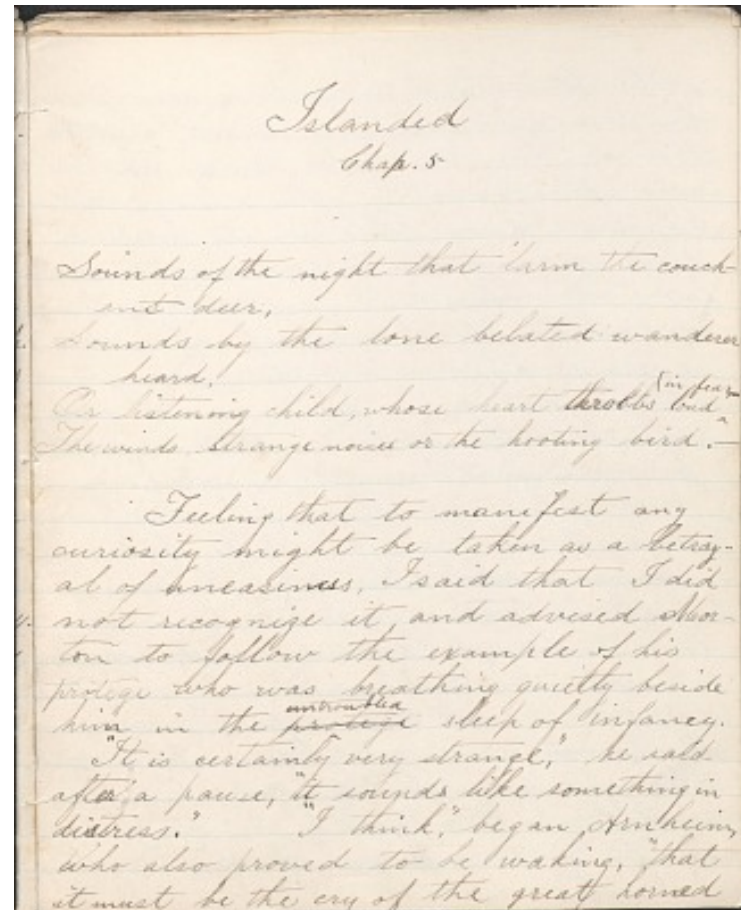 Islanded
Chap. 5
Sounds of the night that 'larm the couch-
ant deer,
Sounds by the lone belated wanderer
heard,
Or listening child, whose heart throbbs loud in fear
The winds strange noises or the hooting bird.—
Feeling that to manifest any
curiosity might be taken as a betray-
al of uneasiness, I said that I did
not recognize it, and advised Mor-
ton to follow the example of his
protege who was breathing quietly beside
him in the protege untroubled sleep of infancy.
"It is certainly very strange," he said
after a pause, "it sounds like something in
distress." "I think," began Arnheim,
who also proved to be waking, "that
it must be the cry of the great horned